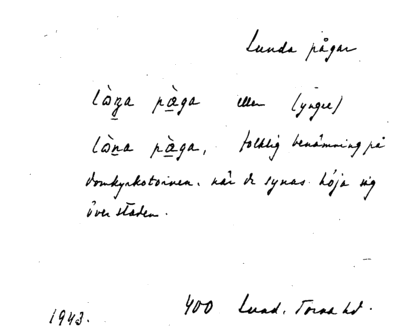 Lunda pågar
lòṉa pæ̀ga eller (yngre)
lòṉa pæ̀ga, folklig benämning på
domkyrkotornen, när de synas höja sig
över staden.
1943. 400 Lund, Torna hd.